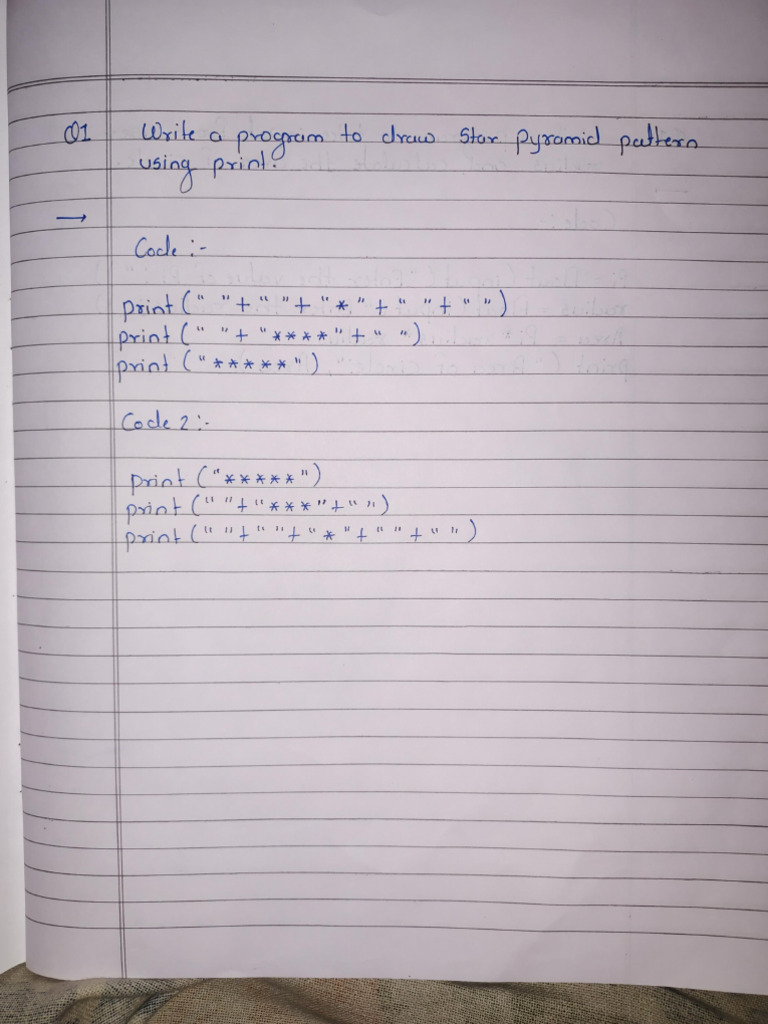 Q1 Write a program to draw Star pyramid pattern
using print.
→
Code :-
print (" "+" "+"*"+" "+" ")
print (" "+"****"+" ")
print ("*****")
Code 2:-
print ("*****")
print (" "+"***"+" ")
print (" "+" "+"*"+" "+" ")